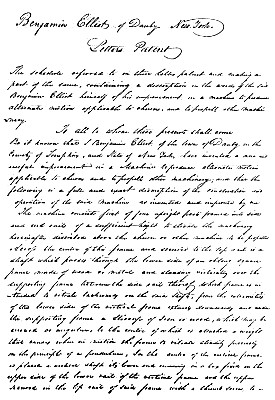 Benjamin Elliot, of Danby, New York.
Letters Patent
The schedule referred to in these letters patent and making a
part of the same, containing a description in the words of the said
Benjamin Elliot himself of his improvement, in a machine to produce
alternate motion applicable to churns, and to propell other machi
nery.
To all to whom these presents shall come
Be it known that I Benjamin Elliot of the town of Danby, in the
County of Tompkins, and State of New York, have invented a new and
useful improvement in a Machine to produce alternate motion
applicable to churns and to propell other machinery, and that the
following is a full and exact description of the construction and
operation of the said Machine as invented and improved by me
The machine consists first of four upright posts framed into side
and end rails of a sufficient height to
above the churn or other machine to be propelled
the centre of the frame and secured to the top rail is a
shaft which passes through the lower side of an oblong square
frame made of wood or metal and standing vertically over the
supporting frame between the side rails thereof, which frame is in
tended to vibrate backwards on the said shaft, from the extremities
of the lower side of the vertical frame extends downwards and under
the supporting frame a of iron or wood, which may be
curved or angular to the centre of which is attached a weight
that causes when in motion the frame to vibrate steadily precisely
on the principle of a pendulum, In the centre of the vertical frame
is placed a shaft its lower end running in a box fixed on the
upper side of the lower rail of the vertical frame and the upper
in the top rail of said frame with a